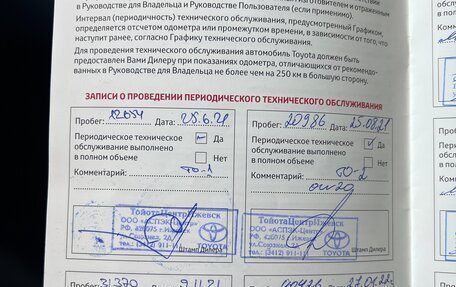 в Руководстве для Владельца и Руководстве Пользователя (если применимо).
Интервал (периодичность) технического обслуживания, предусмотренный Графиком,
определяется отсчетом одометра или промежутком времени, в зависимости от того, что
наступит ранее, согласно Графику технического обслуживания.
Для проведения технического обслуживания автомобиль Toyota должен быть
предоставлен Вами Дилеру при показаниях одометра, отличающихся от рекомендо-
ванных в Руководстве для Владельца не более чем на 250 км в большую сторону.
ЗАПИСИ О ПРОВЕДЕНИИ ПЕРИОДИЧЕСКОГО ТЕХНИЧЕСКОГО ОБСЛУЖИВАНИЯ
Пробег: Дата: 28.6.21
Периодическое техническое Да
обслуживание выполнено
в полном объеме Нет
Комментарий: ТО-1
ТойотаЦентрИжевск
ООО «АСПЭК-
РФ, 426075 г.Ижевск
Союзная,
тел.: (3412) 911-11
TOYOTA
Штамп Дилера
Пробег: 20986 Дата: 25.08.21
Периодическое техническое Да
обслуживание выполнено
в полном объеме Нет
Комментарий: ТО-2
ТойотаЦентрИжевск
ООО «АСПЭК-Центр»
РФ, 426075 г.
Союзная
тел.: (3412) 911-11
TOYOTA
Штамп Дилера
Пробег: 31370 Дата: 9.11.21
Дата: 27.01.22